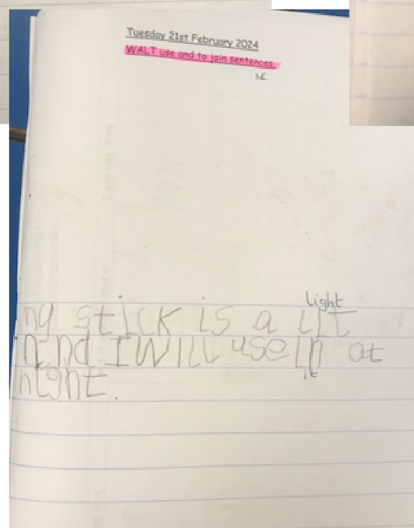 Tuesday 21st February 2024
WALT use and to join sentences.
NC
light
my stick is a lit
and I will use in at
it
night.